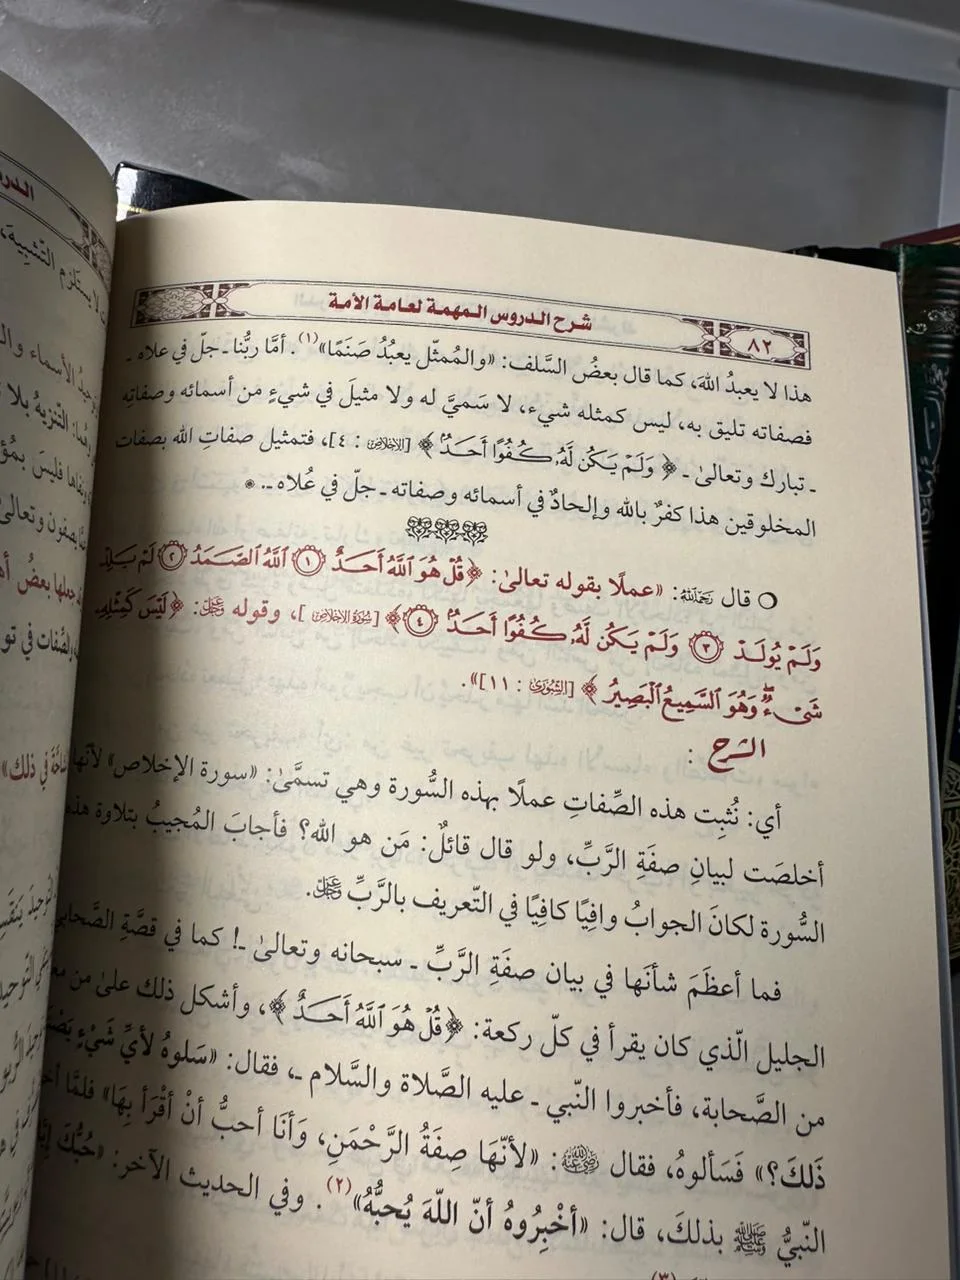 شرح الدروس المهمة لعامة الأمة
٨٢
هذا لا يعبدُ اللهَ، كما قال بعضُ السَّلف: «والمُمثّل يعبُدُ صَنَمًا»(١). أمَّا ربُّنا ـ جلّ في علاه ـ
فصفاته تليق به، ليس كمثله شيء، لا سَميَّ له ولا مثيلَ في شيءٍ من أسمائه وصفاتِه
ـ تبارك وتعالىٰ ـ ﴿وَلَمْ يَكُن لَّهُۥ كُفُوًا أَحَدٌۢ﴾ [الإخلاص : ٤]، فتمثيل صفاتِ الله بصفات
المخلوقين هذا كفرٌ بالله وإلحادٌ في أسمائه وصفاته ـ جلّ في عُلاه ـ.
○ قال رَحِمَهُ اللهُ: «عملًا بقوله تعالىٰ: ﴿قُلْ هُوَ ٱللَّهُ أَحَدٌ ١ ٱللَّهُ ٱلصَّمَدُ ٢ لَمْ يَلِدْ
وَلَمْ يُولَدْ ٣ وَلَمْ يَكُن لَّهُۥ كُفُوًا أَحَدٌۢ ٤﴾ [سُورَةُ الإخلاص]، وقوله عَزَّوَجَلَّ: ﴿لَيْسَ كَمِثْلِهِۦ
شَىْءٌ ۖ وَهُوَ ٱلسَّمِيعُ ٱلْبَصِيرُ﴾ [الشورى : ١١]».
الشرح :
أي: نُثبِت هذه الصِّفاتِ عملًا بهذه السُّورة وهي تسمَّىٰ: «سورة الإخلاص» لأنّها
أخلصَت لبيانِ صفَةِ الرَّبِّ، ولو قال قائلٌ: مَن هو الله؟ فأجابَ المُجيبُ بتلاوة هذه
السُّورة لكانَ الجوابُ وافِيًا كافِيًا في التّعريف بالرَّبِّ عَزَّوَجَلَّ.
فما أعظَمَ شأنَها في بيان صفَةِ الرَّبِّ ـ سبحانه وتعالىٰ ـ! كما في قصَّةِ الصَّحابي
الجليل الّذي كان يقرأ في كلّ ركعة: ﴿قُلْ هُوَ ٱللَّهُ أَحَدٌ﴾، وأشكل ذلك علىٰ من معه
من الصَّحابة، فأخبروا النّبي ـ عليه الصَّلاة والسَّلام ـ، فقال: «سَلوهُ لأيِّ شَيْءٍ
ذَلكَ؟» فَسَألوهُ، فقال رَضِيَ اللهُ عَنْهُ: «لأنّهَا صِفَةُ الرَّحْمَنِ، وَأنَا أحبُّ أنْ أقْرَأ بِهَا» فلمَّا
النّبيُّ ﷺ بذلكَ، قال: «أخْبِرُوهُ أنّ اللّهَ يُحبُّهُ»(٢). وفي الحديث الآخر: «حُبُّكَ